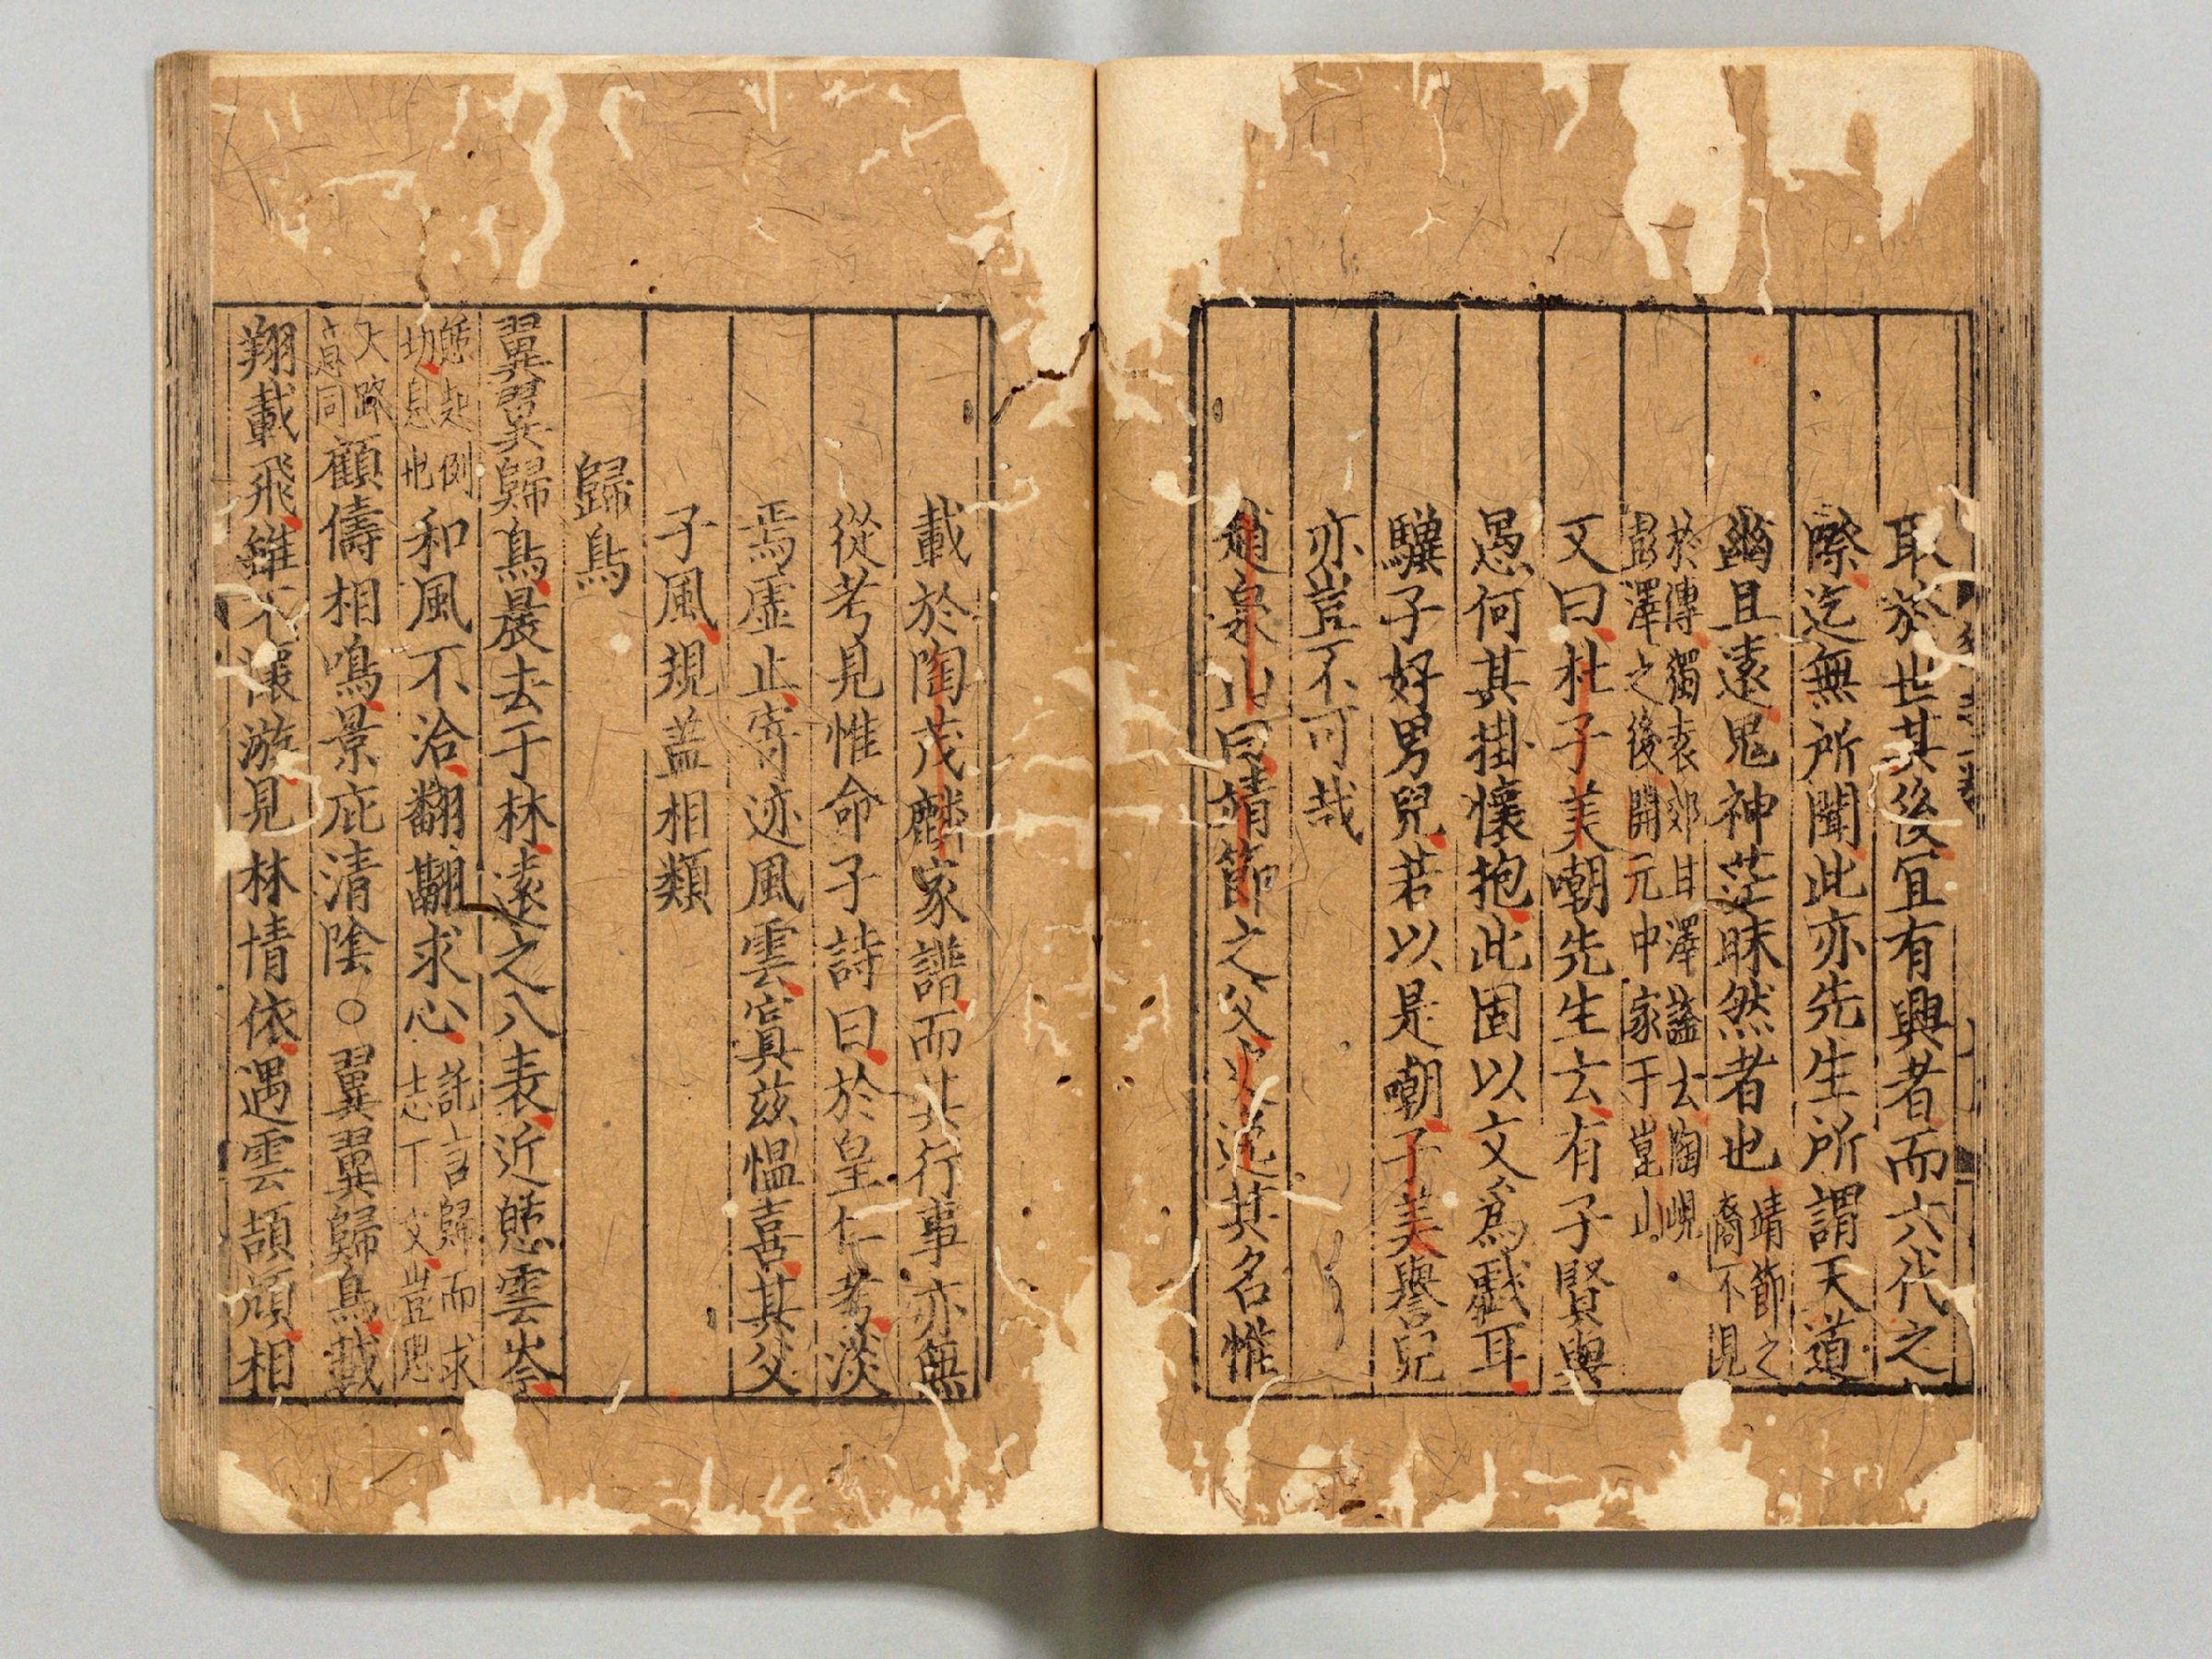 取於世其後冝有興者而六代之
際迄無所聞此亦先生所謂天道
幽且遠鬼神茫昧然者也靖節之裔不見
於傳獨袁郊甘澤謠云陶峴彭澤之後開元中家于崑山
又曰杜子美嘲先生云有子賢與
愚何其掛懷抱此固以文爲戲耳
驥子好男兒若以是嘲子美譽兒
亦豈不可哉
趙泉山曰靖節之父史逸其名惟
載於陶茂麟家譜而其行事亦無
從考見惟命子詩曰於皇仁考淡
焉虛止寄迹風雲寘茲愠喜其父
子風規盖相類
歸鳥
翼翼歸鳥晨去于林遠之八表近憇雲岑
憇起例切息也和風不洽翻翮求心託言歸而求志下文豈思
天路意同顧儔相鳴景庇清陰○翼翼歸鳥載
翔載飛雖不懷游見林情依遇雲頡頏相